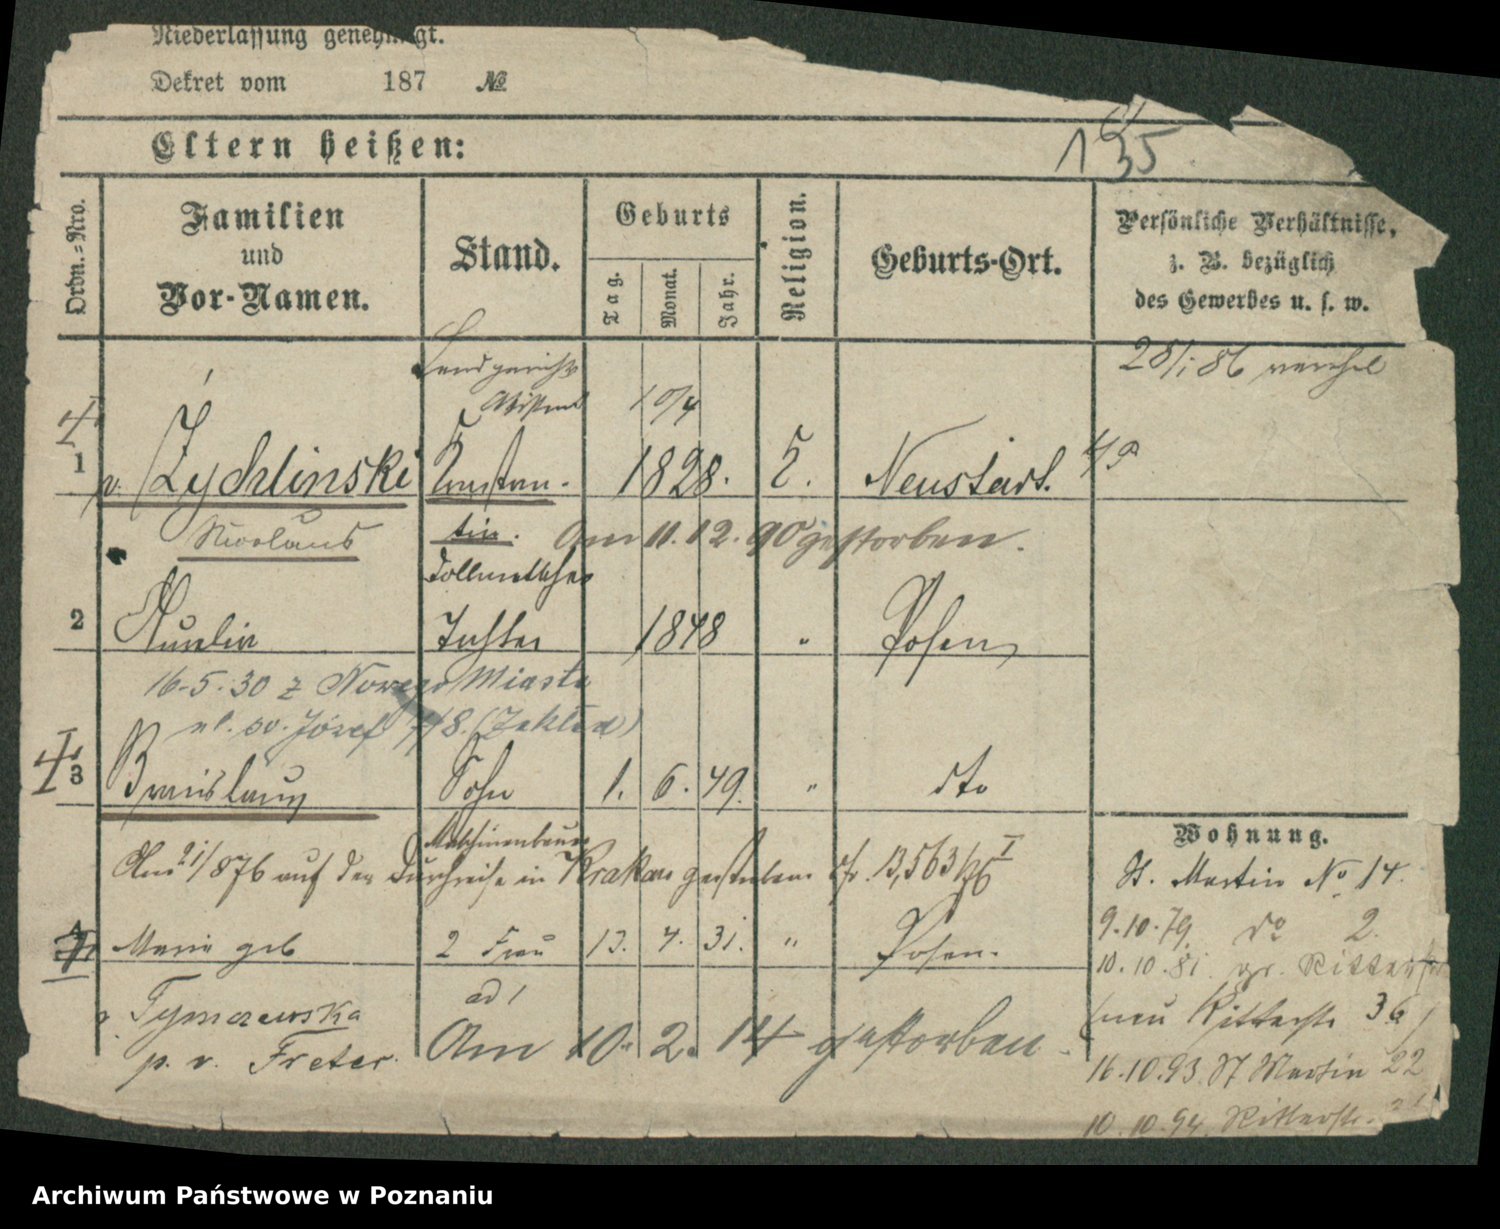 Niederlassung genehmigt.
Dekret vom 187 №
Eltern heißen:
135
Ordn.-Nro.
Familien
und
Vor-Namen.
Stand.
Geburts
Tag.
Monat.
Jahr.
Religion.
Geburts-Ort.
Persönliche Verhältnisse,
z. B. bezüglich
des Gewerbes u. s. w.
28/1 86
Landgerichts
10/4
1 v. Żychlinski Konstan- 1828. Neustadt.
Nicolaus tin. Am 11.12.90 gestorben.
Dollmetscher
2 Aurelia Tochter 1848 " Posen
16-5-30 z Nowego Miasta
ul. św. Józef 7/8. (Zakład)
3 Bronislaus Sohn 1. 6. 49. " dto
Maschinenbauer
Am 21/876 auf der Durchreise in Krakau gestorben cfr. 13,563/76 I
4 Marie geb 2 Frau 13. 4. 31. " Posen.
Tymozewska ad 1
p. v. Freter. Am 10. 2. 14 gestorben.
Wohnung.
St. Martin No 14.
9.10.79. do 2.
10.10.81. gr. Ritterstr
neu Ritterstr 36
16.10.93. St Martin 22
10.10.94. Ritterstr.